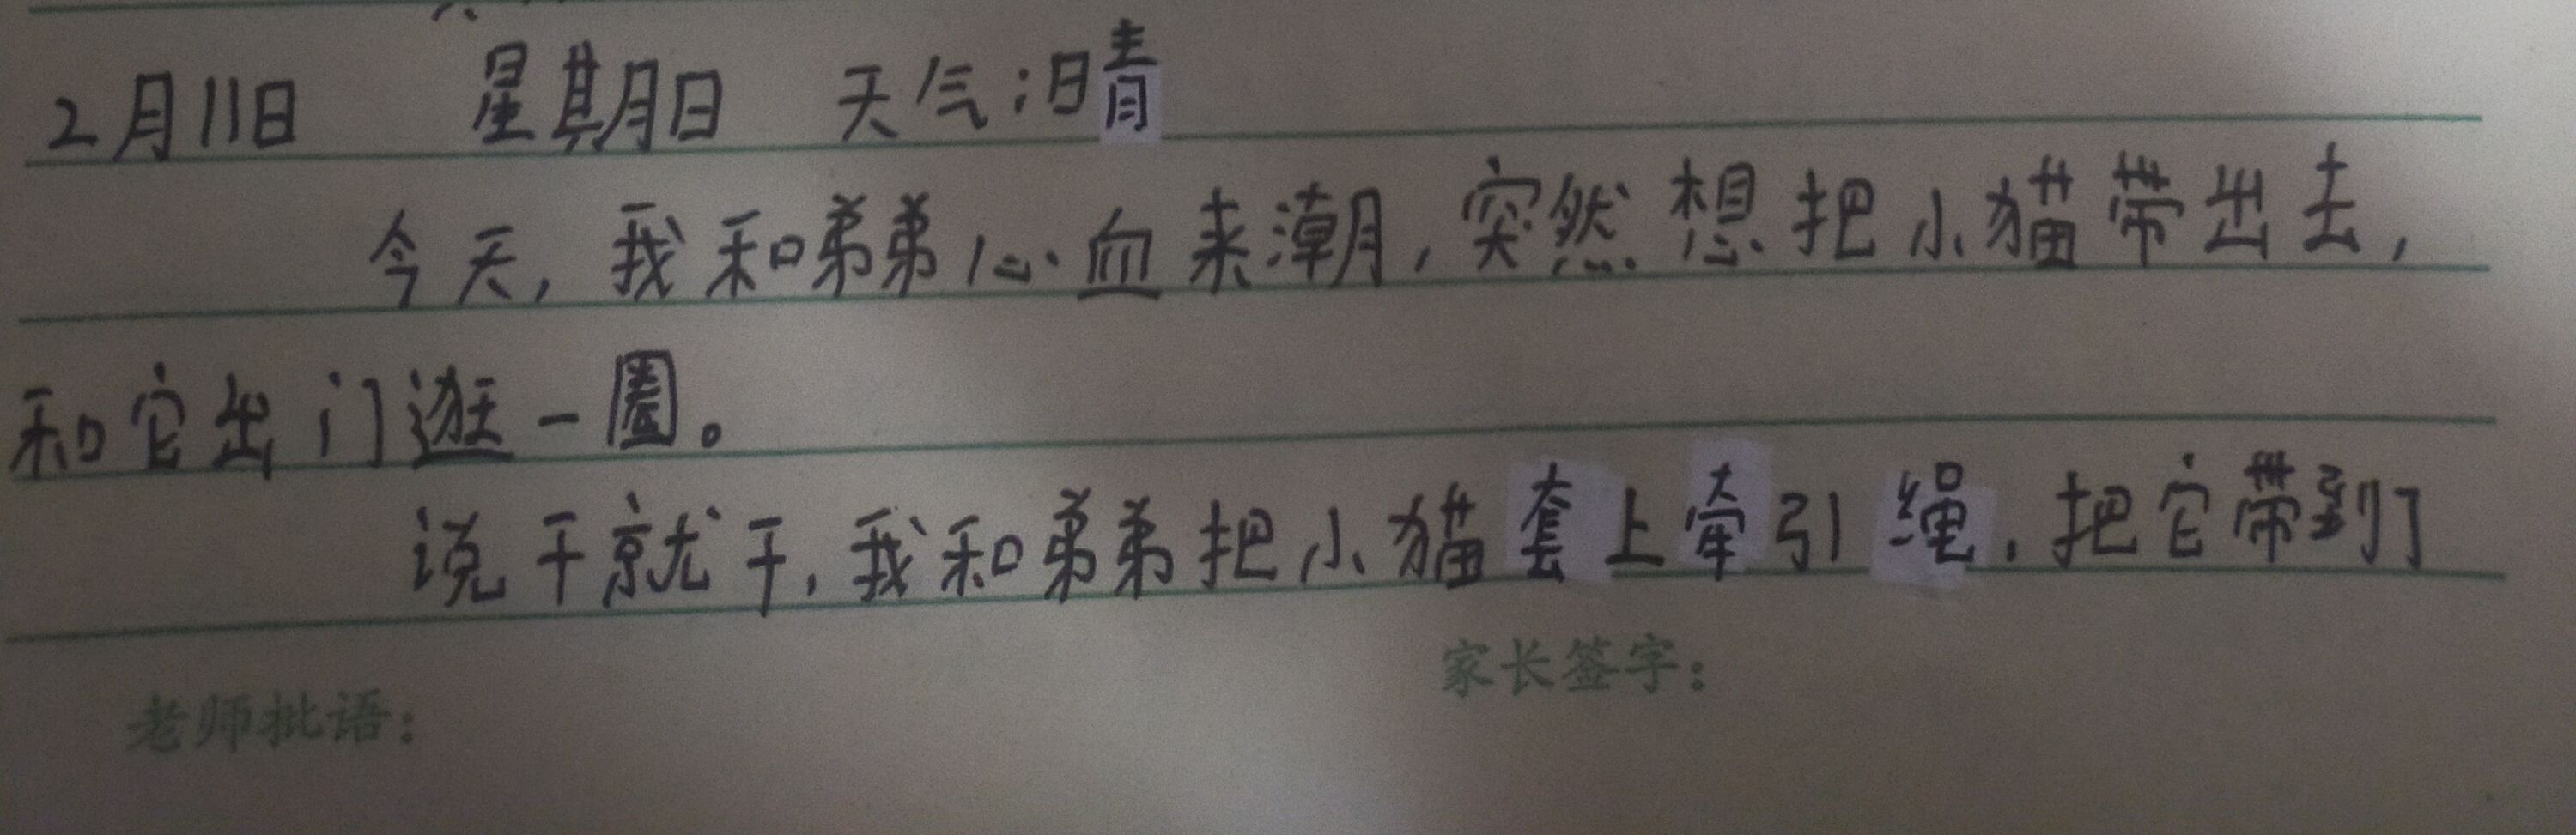 2月11日 星期日 天气:晴
今天,我和弟弟心血来潮,突然想把小猫带出去,
和它出门逛一圈。
说干就干,我和弟弟把小猫套上牵引绳,把它带到
家长签字:
老师批语: